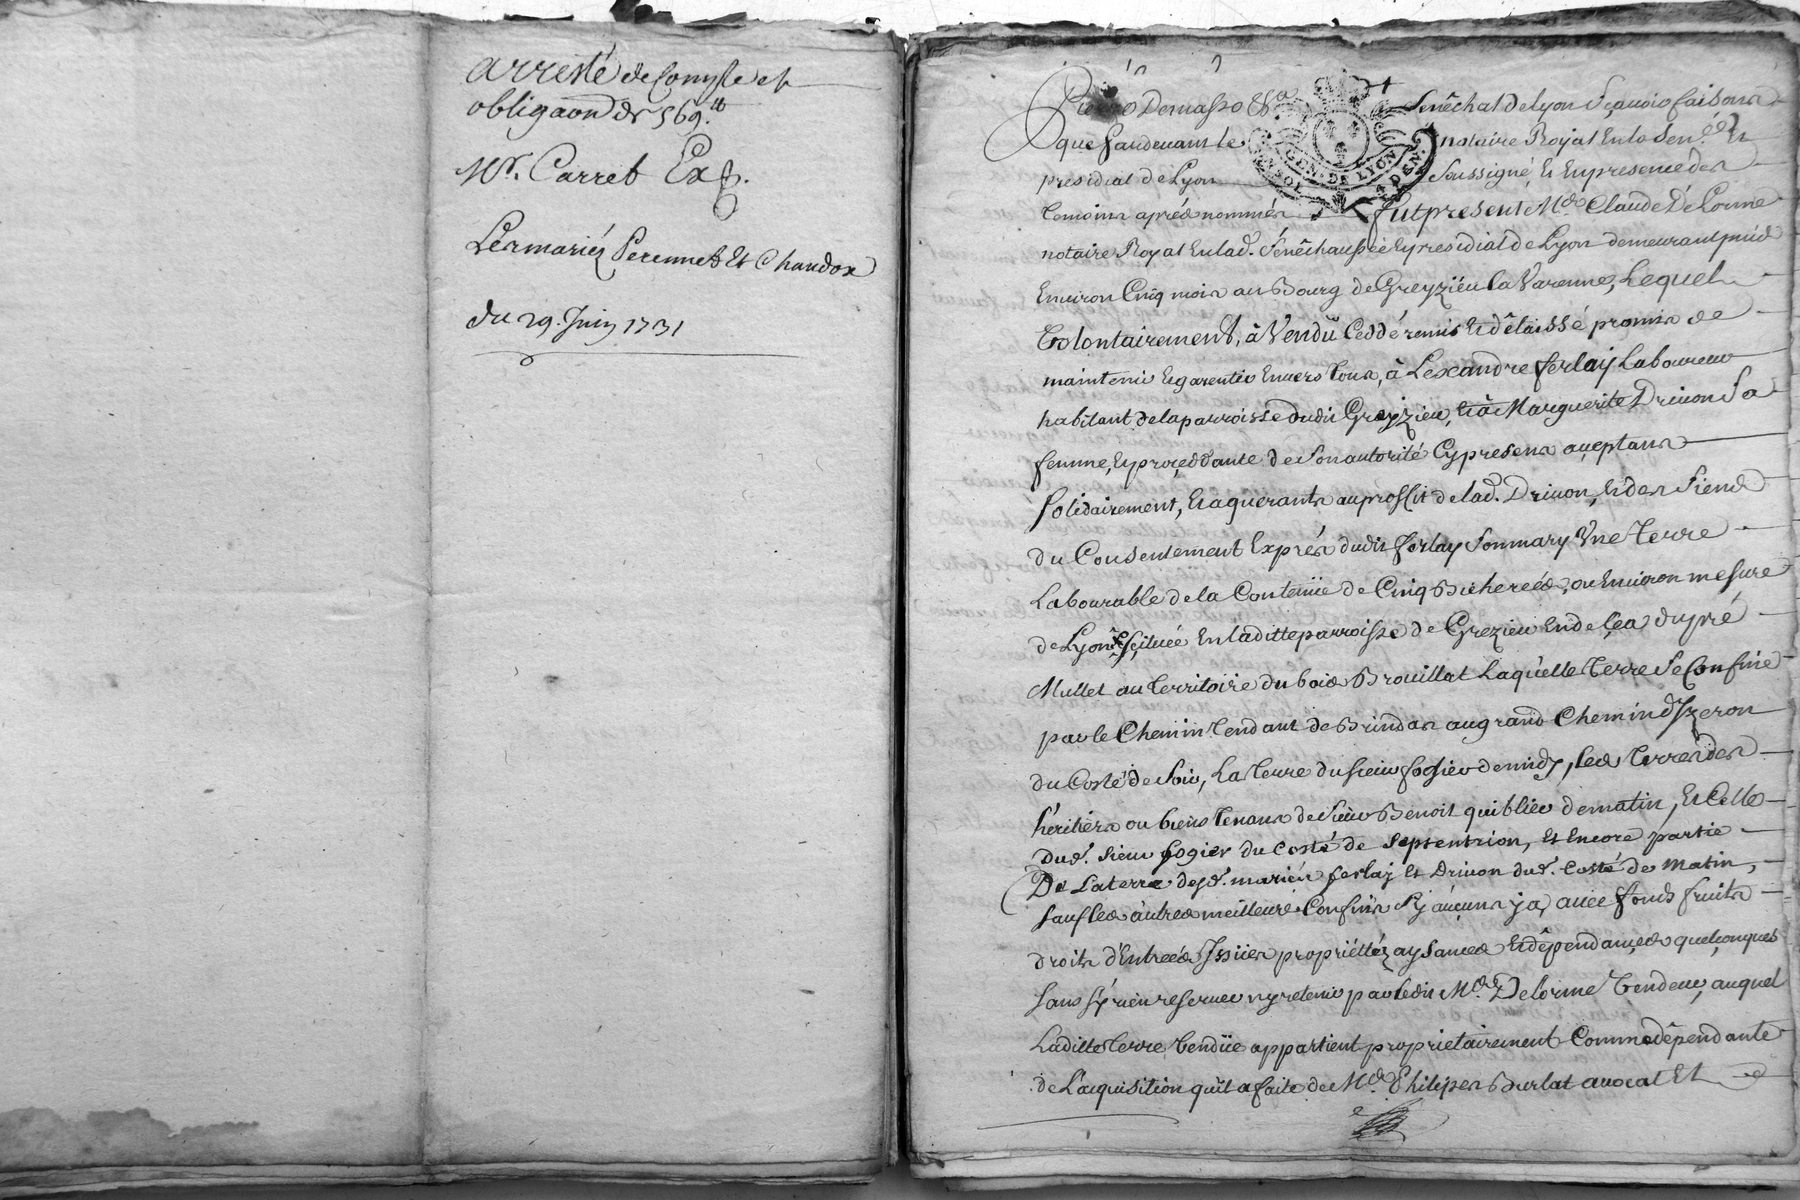 arresté de Compte et
obligaon de 569.tt
Mr. Carret Exp.
Les mariéz Perennet Et Chandox
du 29. Juin 1731
Pierre Demasso &a Senêchal de Lyon Sçavoir faisons
que pardevant le notaire Royal En la Sen.ée Et
presidial de Lyon Soussigné, Et En presence des
temoins aprés nommés fut present Me Claude DeLorme
notaire Royal En lad. Sénêchaussée Et presidial de Lyon demeurant puis
Environ Cinq mois au Bourg de Greyziëu la Varenne, Lequel
Volontairement, à Vendü Ceddé remis Et dêlaissé promis de
maintenir Et garentir Envers tous, à Lexandre ferlaÿ Laboureur
habitant de la parroisse dudit Greyzieu, Et à Marguerite Drivon Sa
femme, Et proçeddante de Son autorité Cy presens açeptans
Solidairement, Et aquerants au proffit de lad. Drivon, Et des Siens
du Consentement Exprés dudit ferlay Son mary Vne terre
Labourable de la Contenüe de Cinq Bicherées, ou Environ mesure
de Lyon, scituée En laditte parroisse de Grezieu En deça du pré
Mullet au territoire du bois Brouillat Laquelle terre Se Confine
par le Chemin tendant de Brindas au grand Chemin d'Izeron
du Costé de Soir, La terre du sieur fogier de midy, les terres des
héritiers ou biens tenans de Sieur Benoit quiblier de matin, Et Celle
dud. Sieur fogier du costé de Septentrion, Et Encore partie
De La terre desd. mariés ferlaj Et Drivon dud. costé de matin,
Sauf les autres meilleurs Confins Sy aucuns y a, avec fonds fruits
droits d'Entrées Issües propriéttéz aysances Et dêpendançes quelçonques
Sans Sÿ rien reserver ny retenir par ledit Me Delorme Vendeur, auquel
Laditte terre Vendüe appartient proprietairement Comme dêpendante
de L'acquisition qu'il a faite de Me Philipes Burlat avocat Et